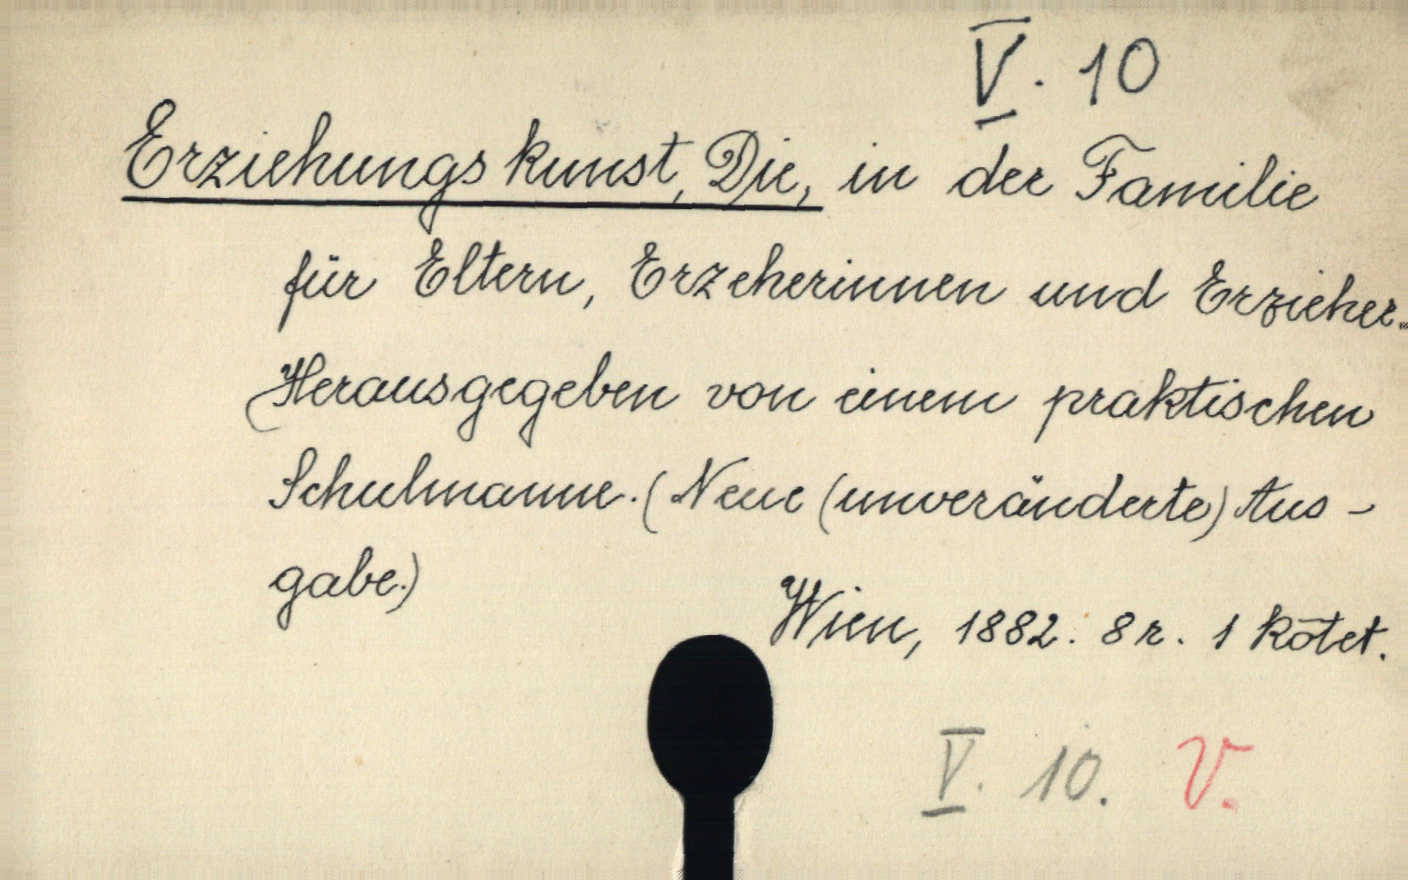 V. 10
Erziehungskunst, Die, in der Familie
für Eltern, Erzeherinnen und Erzieher.
Herausgegeben von einem praktischen
Schulmanne. (Neue (unveränderte) Aus-
gabe.)
Wien, 1882. 8r. 1 kötet.
V. 10. V.